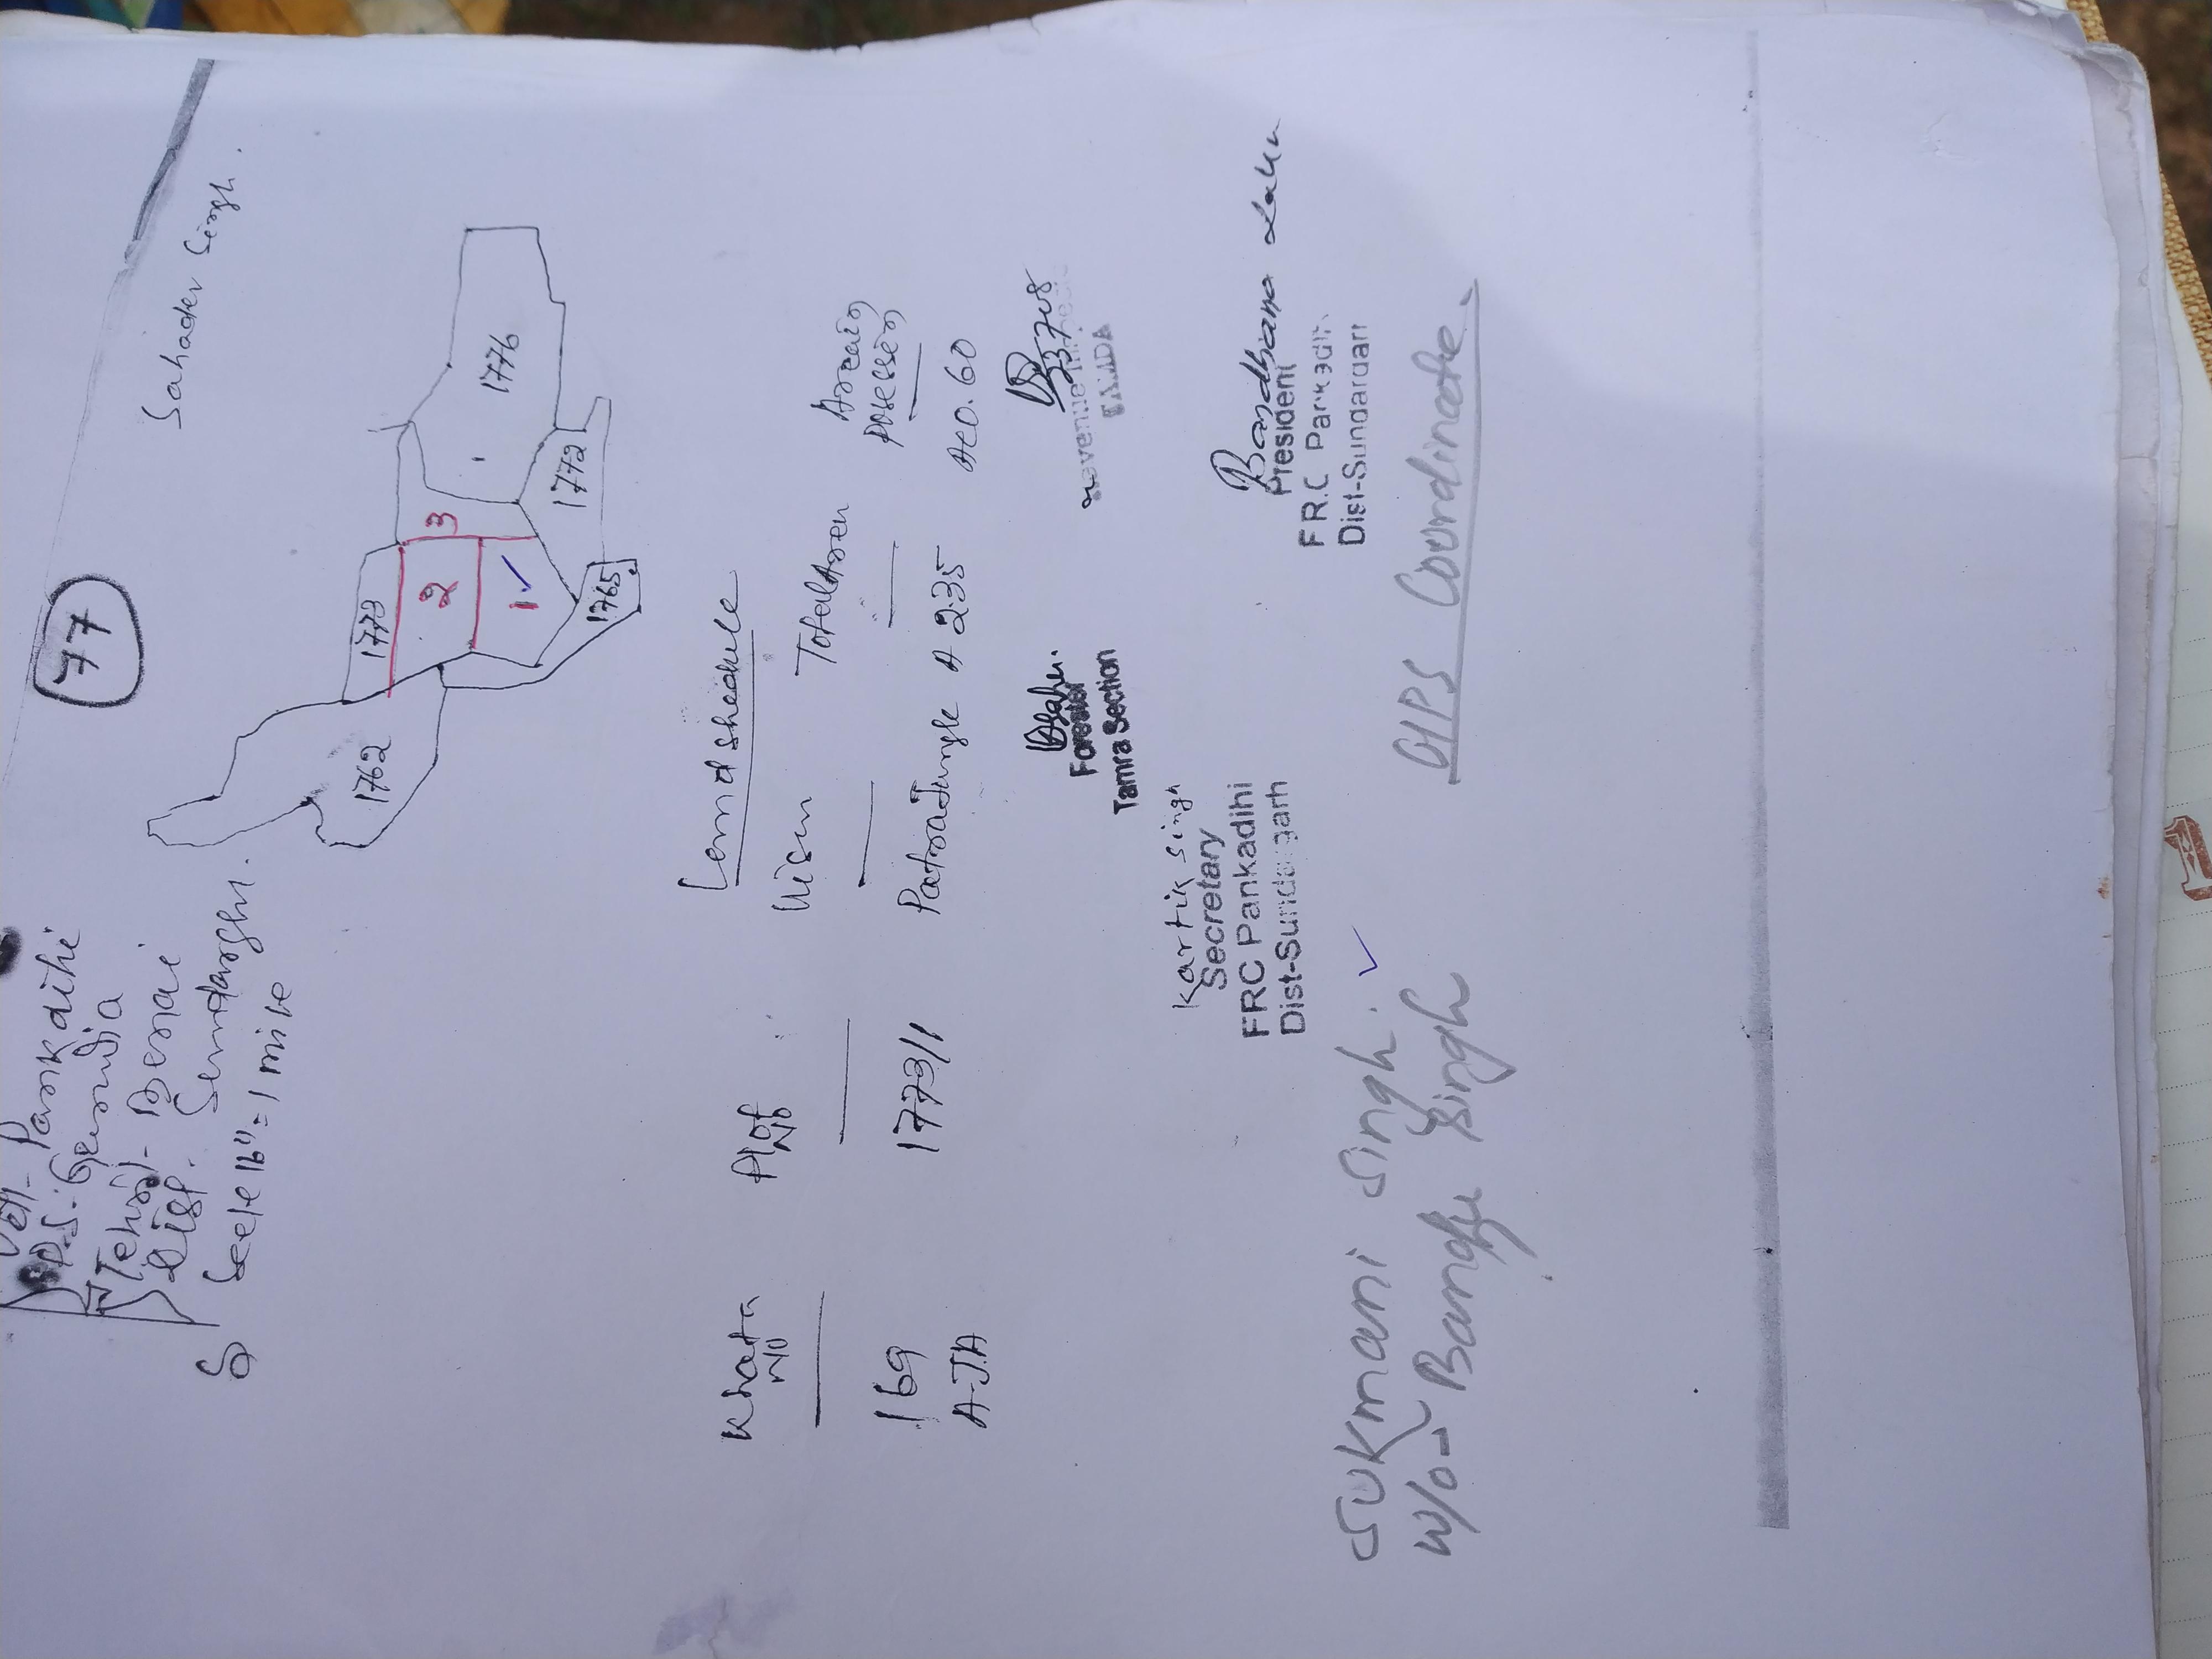 77
Vill- Pankadihi
P.S. Gurundia
Tehsil- Bonai
Dist. Sundargarh.
Scale 16"=1 mile
Sahadev Singh.
1762
1773
2
3
1
1776
1772
1765
Land shedule
Khata No
Plot No
Kisam
Total Area
Area in
169
A-J.A
1773/1
Patra Jungle
A 2.35
AC0.60
Forester
Tamra Section
23.7.08
TAMDA
Kartik Singh
Secretary
FRC Pankadihi
Dist-Sundargarh
President
F.R.C Pankadihi
Dist-Sundargarh
Sukmani Singh.
W/o- Bandhu Singh
GPS Coordinate